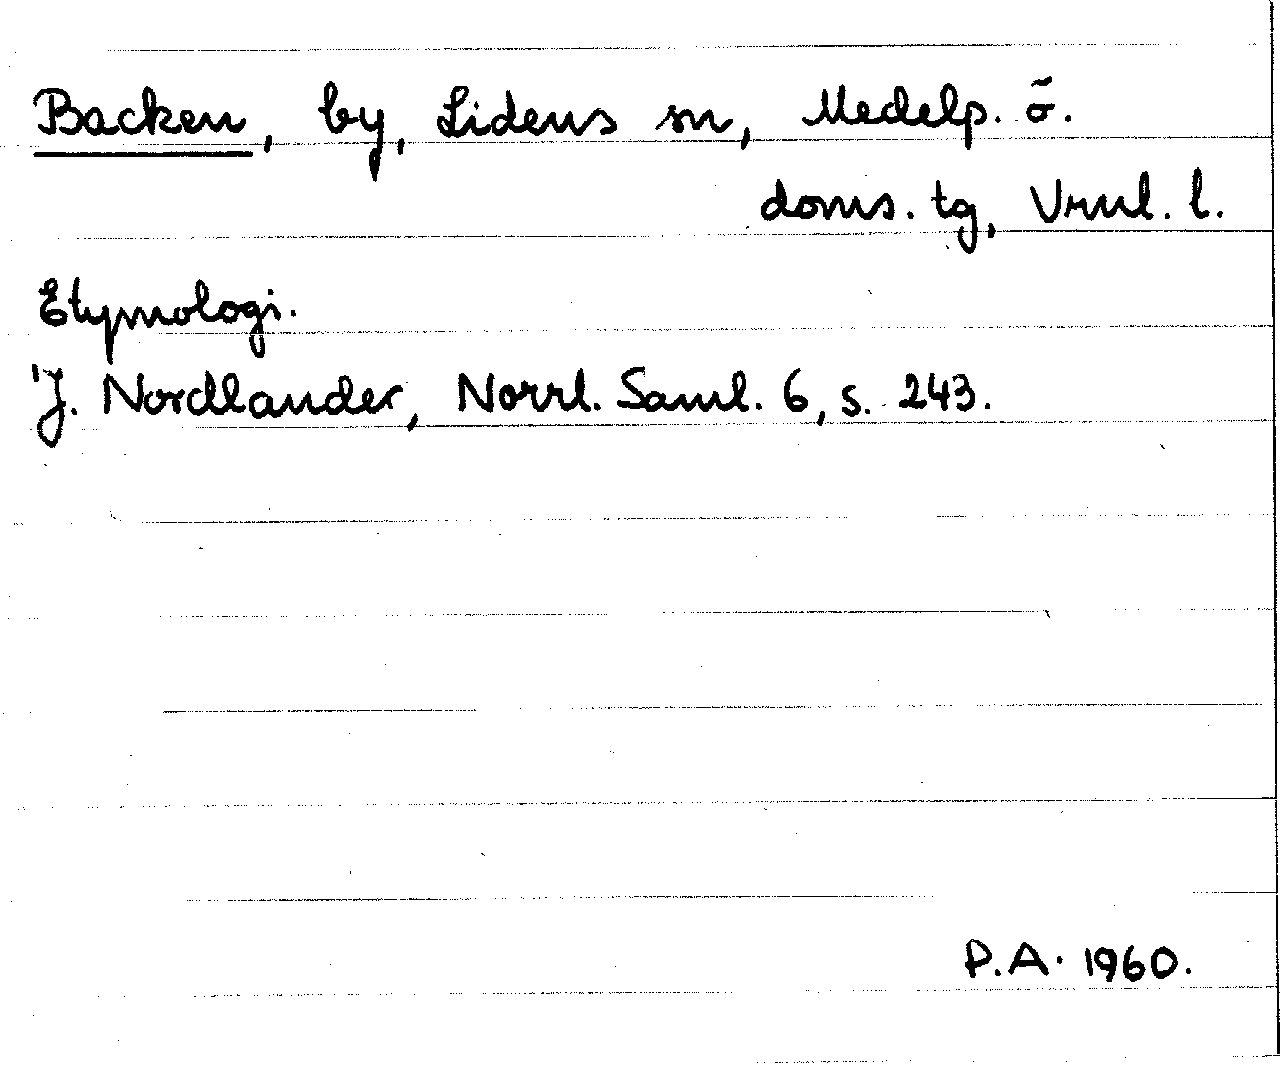 Backen, by, Lidens sn, Medelp. ö.
doms. tg, Vrnl. l.
Etymologi.
J. Nordlander, Norrl. Saml. 6, s. 243.
P.A. 1960.